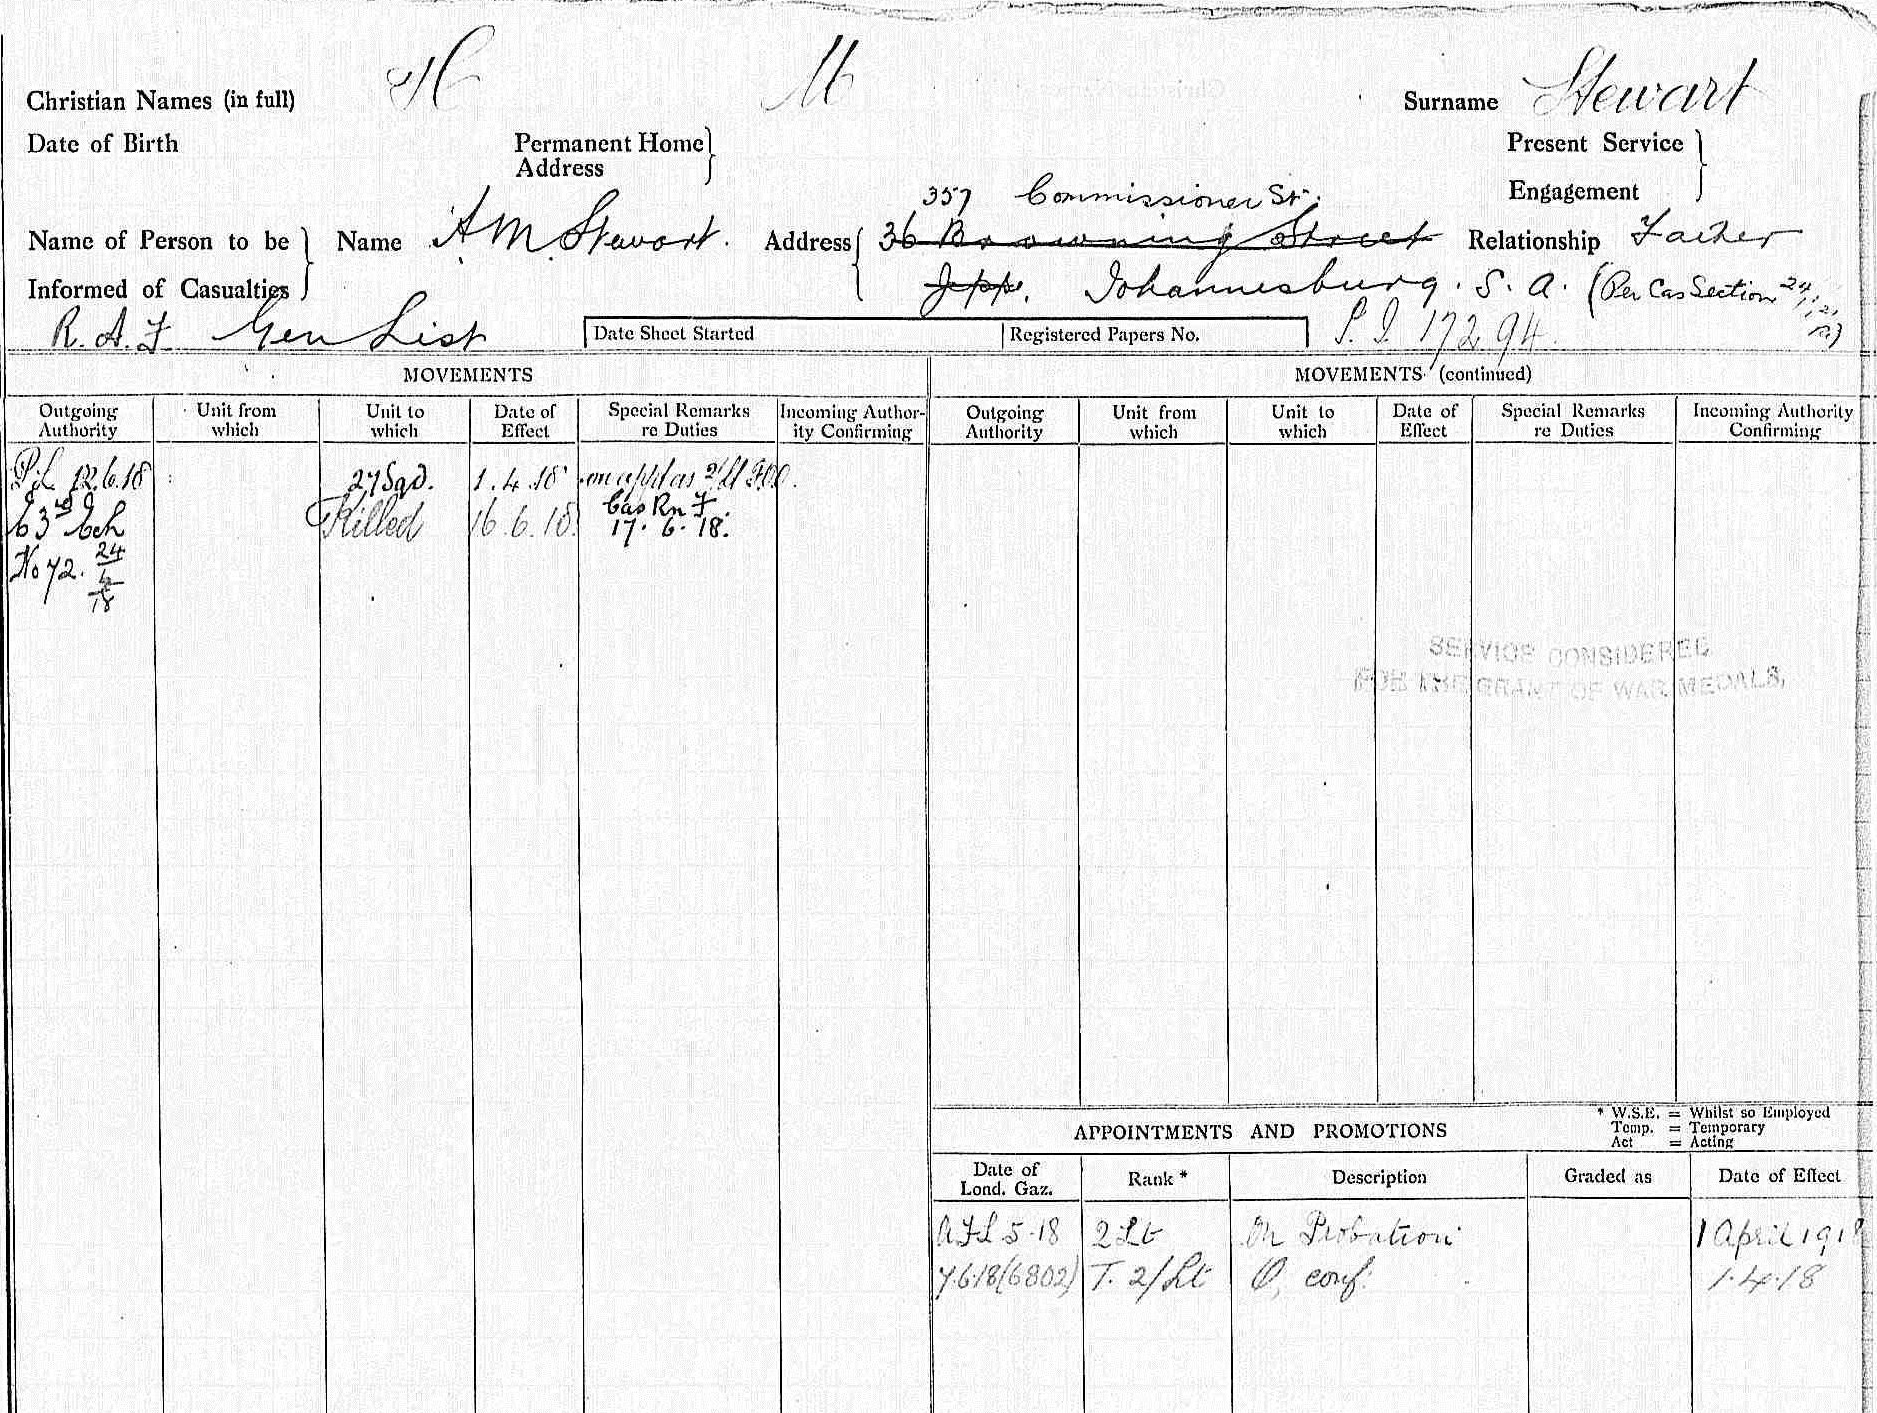 Christian Names (in full) H M Surname Stewart
Date of Birth Permanent Home Address Present Service
Engagement
357 Commissioner St.
Name of Person to be Informed of Casualties Name A M Stewart. Address 36 Browning Street Relationship Father
Jppe. Johannesburg. S. A. (Per Cas Section
R.A.F. Gen List Date Sheet Started Registered Papers No. P.I. 17294
MOVEMENTS
Outgoing Authority Unit from which Unit to which Date of Effect Special Remarks re Duties Incoming Authority Confirming
12.6.18 27 Sqd. 1.4.18 on appt as 2/Lt
Killed 16.6.18 Cas Rn F.
17.6.18.
No 72. 24/4/18
MOVEMENTS (continued)
Outgoing Authority Unit from which Unit to which Date of Effect Special Remarks re Duties Incoming Authority Confirming
SERVICE CONSIDERED
FOR THE GRANT OF WAR MEDALS,
APPOINTMENTS AND PROMOTIONS
* W.S.E. = Whilst so Employed
Temp. = Temporary
Act = Acting
Date of Lond. Gaz. Rank * Description Graded as Date of Effect
AFL 5-18 2 Lt On Probation 1 April 1918
7.6.18 (6802) T. 2/Lt O, conf. 1.4.18